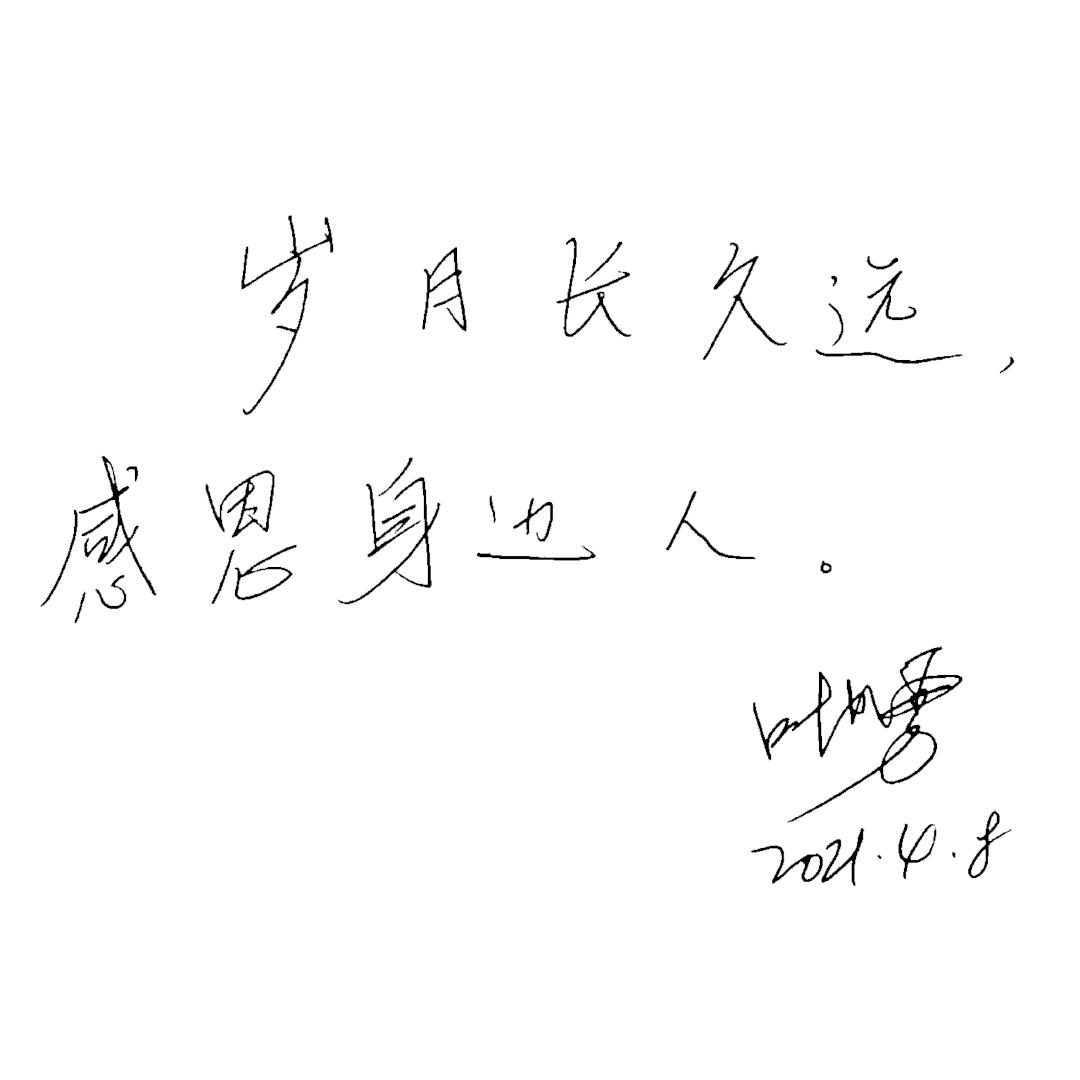 岁月长久远，
感恩身边人。
2021.4.8